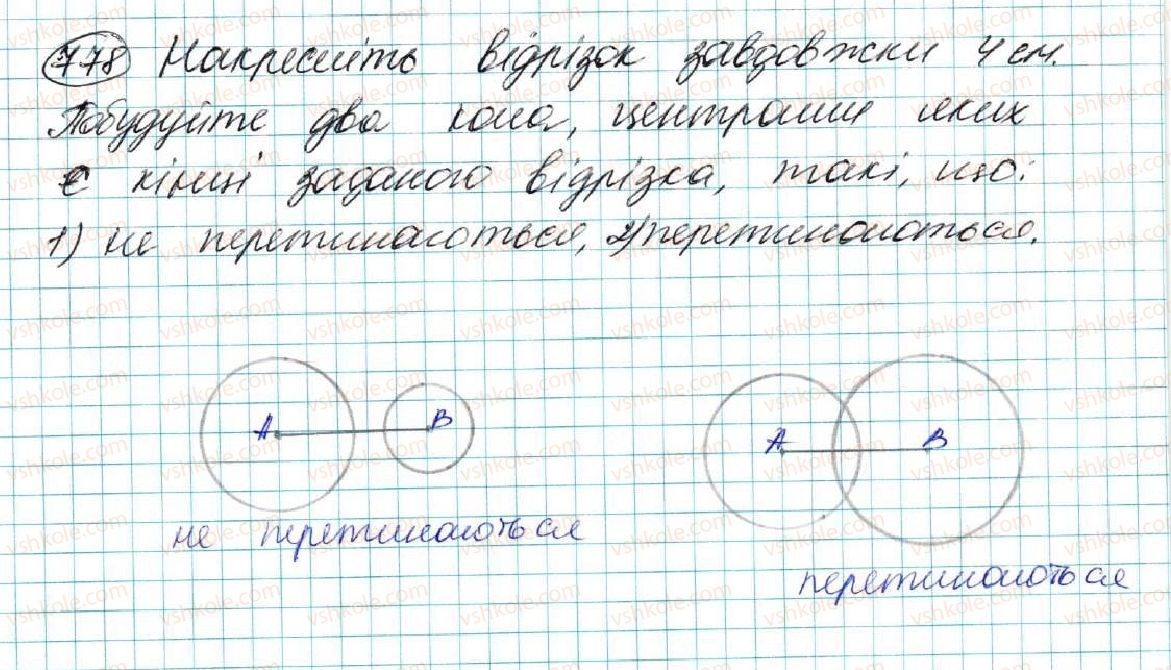 778 Накресліть відрізок завдовжки 4 см.
Побудуйте два кола, центрами яких
є кінці заданого відрізка, такі, що:
1) не перетинаються, 2) перетинаються.
A B
A B
не перетинаються
перетинаються
vshkole.com